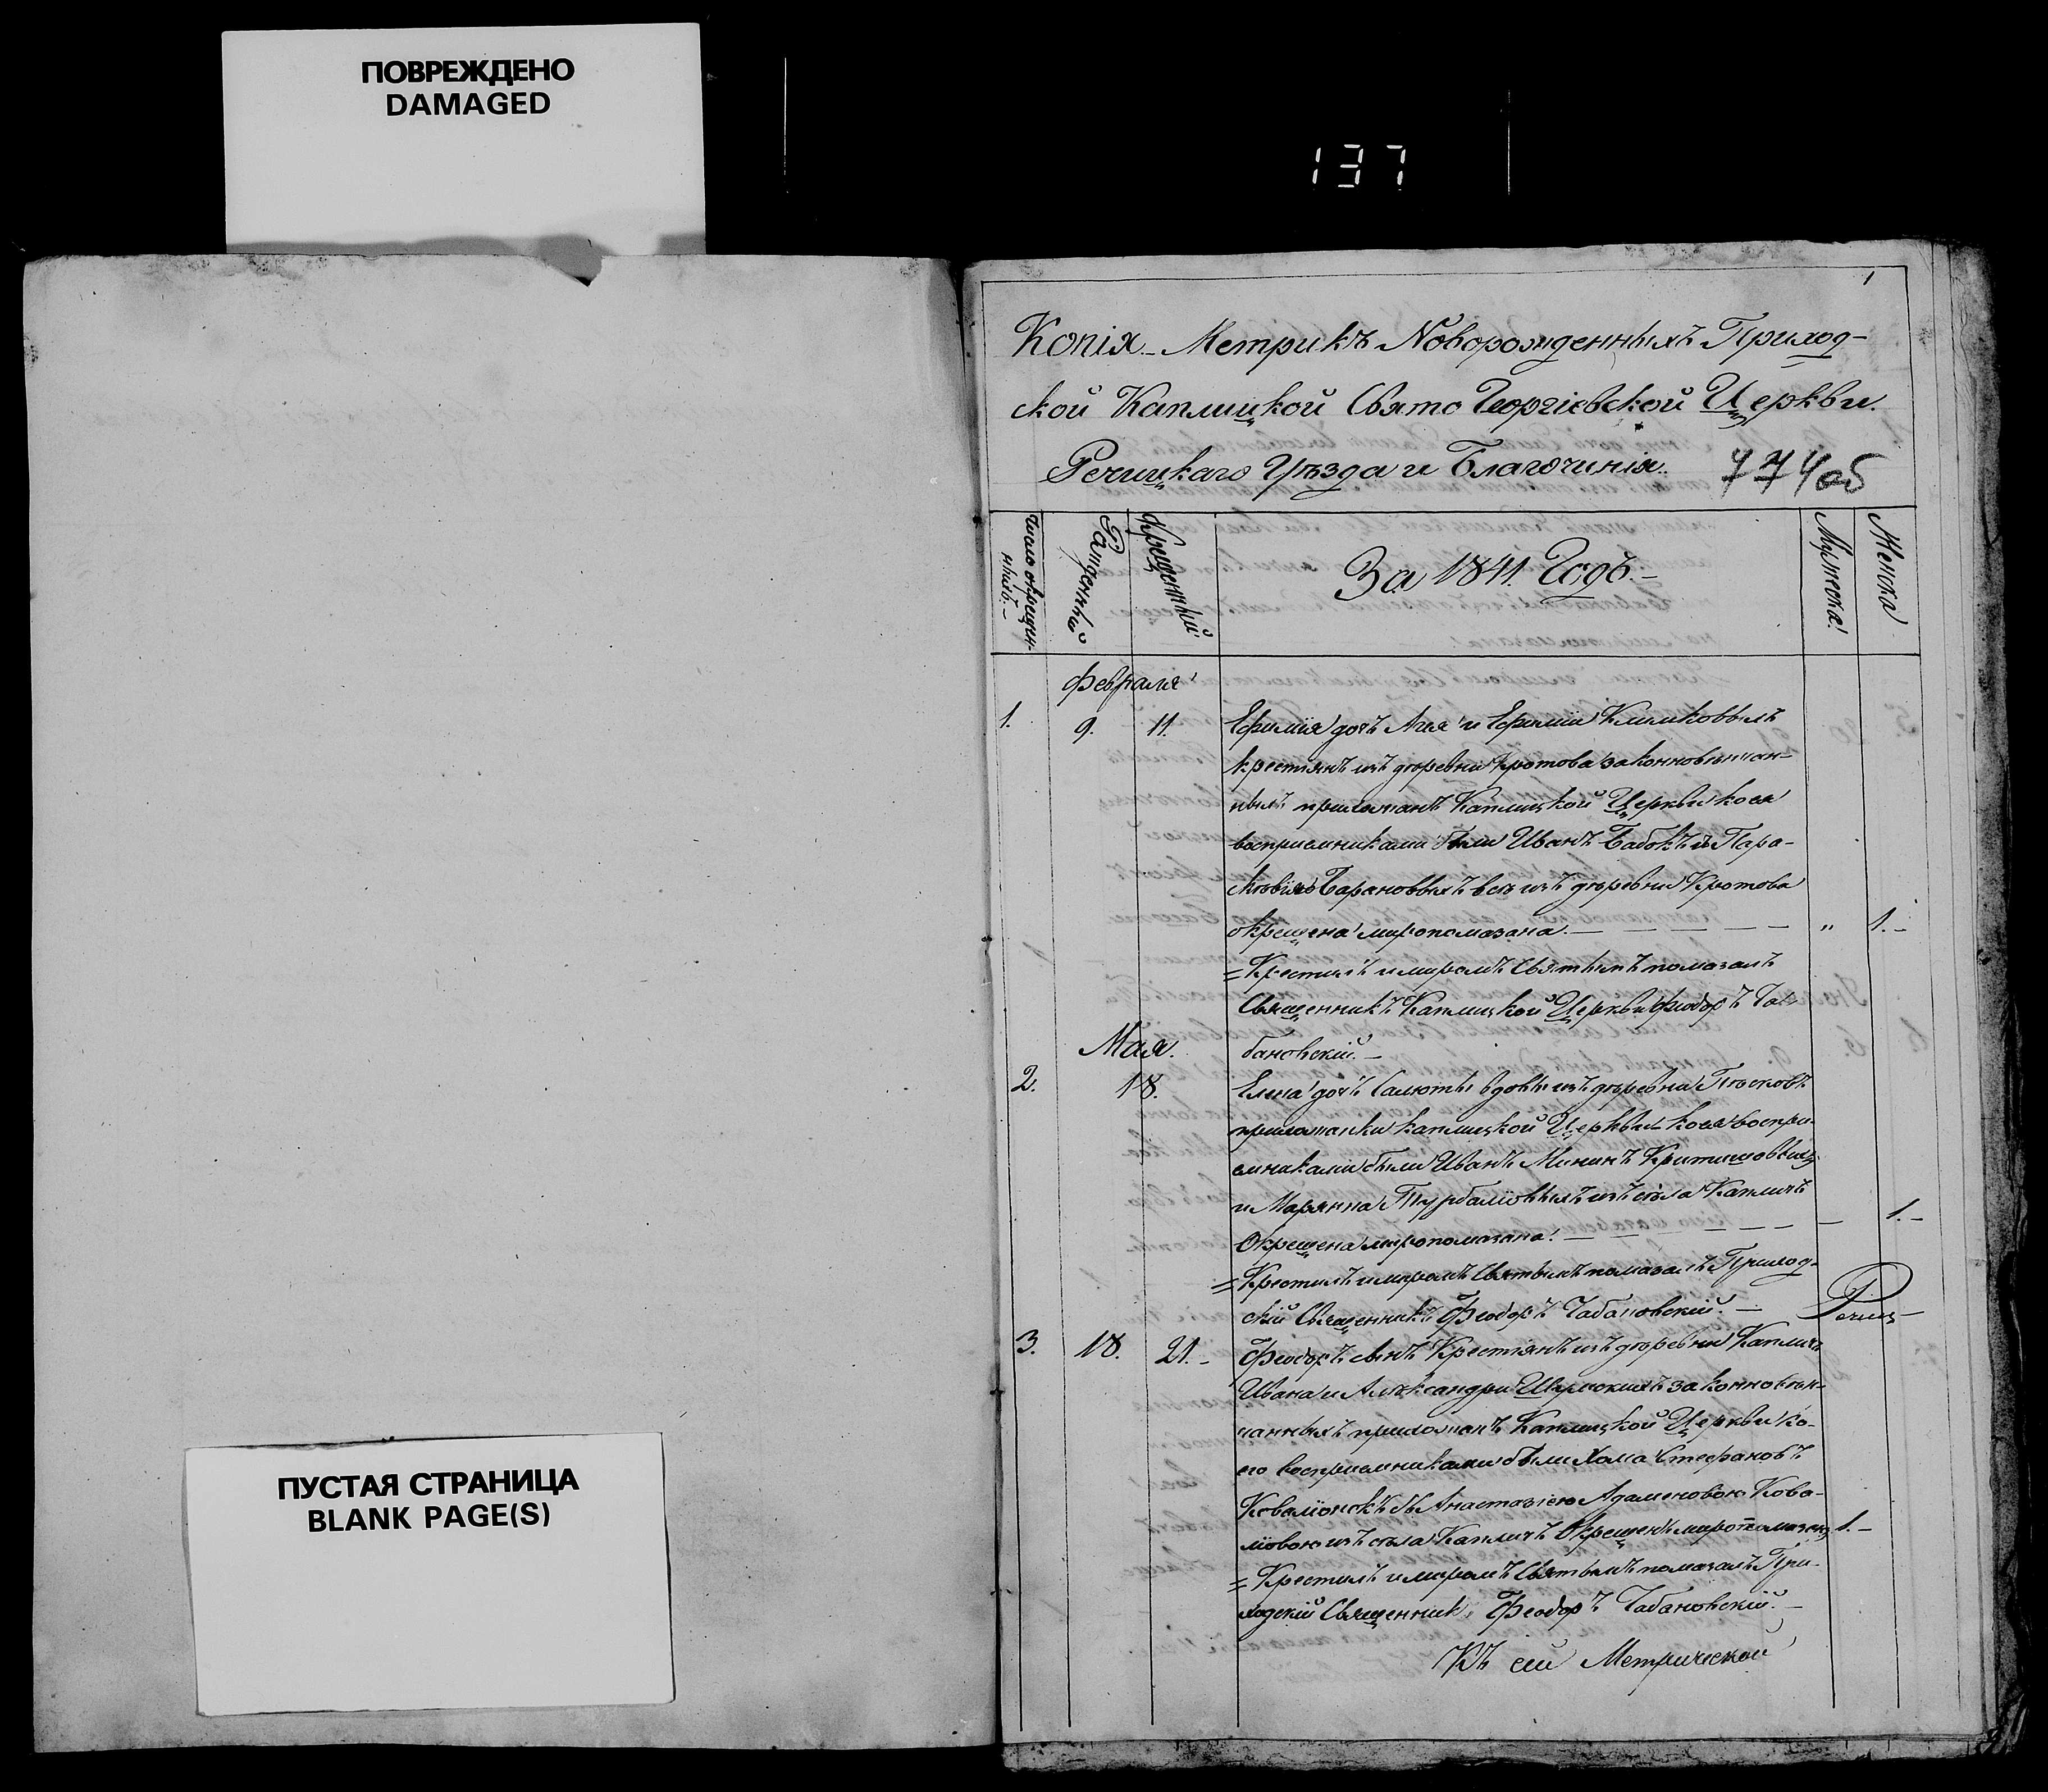 ПОВРЕЖДЕНО
DAMAGED
137
1
Копія Метрикъ Новорожденныхъ Приход-
ской Каплицкой Свято Георгіевской Церкви
Речицкаго Уѣзда и Благочинія.
774об
Число окрещен-
ныхъ.
Рожденный
Крещенный
За 1841. Годъ.
Мужеска
Женска
Февраля
1. 9. 11. Ефимія дочъ и Ефиміи Климковыхъ
крестянъ изъ дѣревни Кротова законновѣнчан-
ныхъ прихожанъ Каплицкой Церкви коея
восприемниками были Иванъ Бабокъ съ Пара-
Барановыхъ всѣ изъ дѣревни Кротова
окрещена миропомазана. — — — — — „ 1.-
=Крестилъ и миромъ Святымъ помазалъ
Священникъ Каплицкой Церкви Фіодоръ Ча-
Мая.
бановскій.-
2. 18. Елена дочъ вдовы изъ дѣревни
прихожанки Каплицкой Церкви коея воспри-
емниками были Иванъ Мининъ
и Марянна изъ сѣла Капличъ
Окрещена миропомазана. — — — — — — 1.-
=Крестилъ и миромъ Святымъ помазалъ Приход-
скій Священникъ Феодоръ Чабановскій.-
Речиц-
3. 18. 21.- Феодоръ сынъ Крестянъ изъ дѣревни Капличъ
Ивана и Александри законновѣн-
чанныхъ прихожанъ Каплицкой Церкви ко-
его восприемниками были Хома Стефановъ
Ковалюокъ съ Анастазіею Адаменовою Кова-
изъ сѣла Капличъ Окрещенъ миропомазанъ 1.-
=Крестилъ и миромъ Святымъ помазалъ При-
ходскій Священникъ Феодоръ Чабановскій.-
Къ сей Метрической
ПУСТАЯ СТРАНИЦА
BLANK PAGE(S)